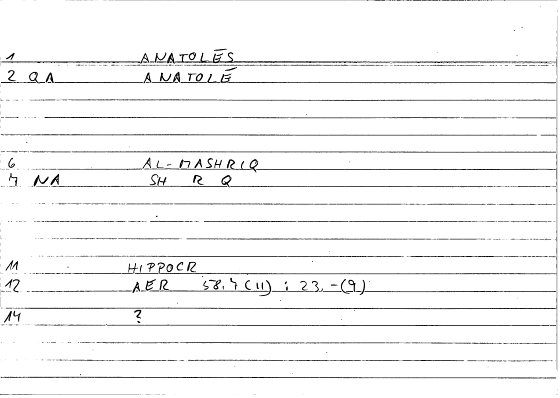 1 ANATOLĒS
2 QA ANATOLĒ
6 AL-MASHRIQ
7 NA SH R Q
11 HIPPOCR
12 AER 58.7(11) : 23.-(9)
14 ?